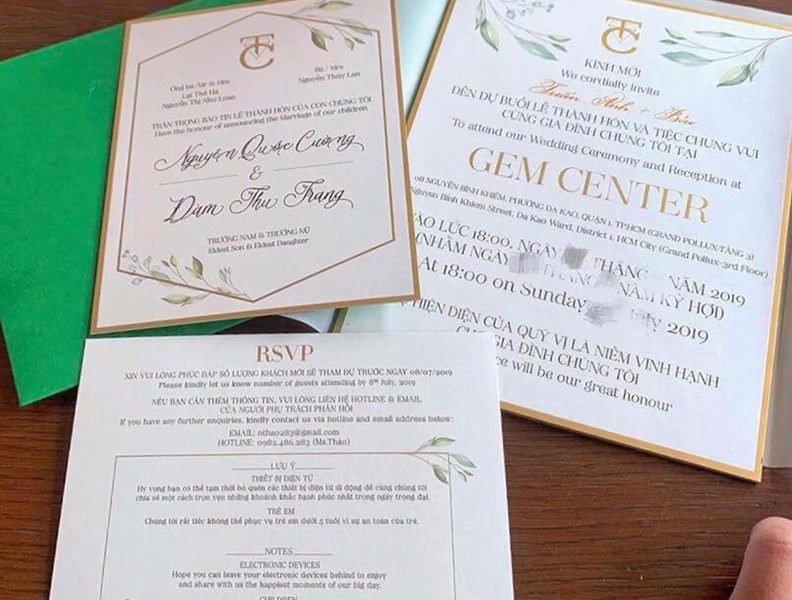 TC
Ông bà/Mr & Mrs
Lại Thế Hà
Nguyễn Thị Như Loan
Bà / Mrs
Nguyễn Thúy Lan
TRÂN TRỌNG BÁO TIN LỄ THÀNH HÔN CỦA CON CHÚNG TÔI
Have the honour of announcing the Marriage of our children
Nguyễn Quốc Cường
&
Đàm Thu Trang
TRƯỞNG NAM & TRƯỞNG NỮ
Eldest Son & Eldest Daughter
TC
KÍNH MỜI
We cordially invite
ĐẾN DỰ BUỔI LỄ THÀNH HÔN VÀ TIỆC CHUNG VUI
CÙNG GIA ĐÌNH CHÚNG TÔI TẠI
To attend our Wedding Ceremony and Reception at
GEM CENTER
08 NGUYỄN BỈNH KHIÊM, PHƯỜNG ĐA KAO, QUẬN 1, TP.HCM (GRAND POLLUX-TẦNG 3)
Nguyen Binh Khiem Street, Da Kao Ward, District 1, HCM City (Grand Pollux-3rd Floor)
VÀO LÚC 18:00, NGÀY THÁNG NĂM 2019
(NHẰM NGÀY THÁNG NĂM KỶ HỢI)
At 18:00 on Sunday July 2019
HIỆN DIỆN CỦA QUÝ VỊ LÀ NIỀM VINH HẠNH
GIA ĐÌNH CHÚNG TÔI
will be our great honour
RSVP
XIN VUI LÒNG PHÚC ĐÁP SỐ LƯỢNG KHÁCH MỜI SẼ THAM DỰ TRƯỚC NGÀY 08/07/2019
Please kindly let us know number of guests attending by 8th July, 2019
NẾU BẠN CẦN THÊM THÔNG TIN, VUI LÒNG LIÊN HỆ HOTLINE & EMAIL
CỦA NGƯỜI PHỤ TRÁCH PHẢN HỒI
If you have any further enquiries, kindly contact us via hotline and email address below:
EMAIL: nthao283@gmail.com
HOTLINE: 0982.486.283 (Ms.Thảo)
LƯU Ý
THIẾT BỊ ĐIỆN TỬ
Hy vọng bạn có thể tạm thời bỏ quên các thiết bị điện tử di động để cùng chúng tôi
chia sẻ một cách trọn vẹn những khoảnh khắc hạnh phúc nhất trong ngày trọng đại.
TRẺ EM
Chúng tôi rất tiếc không thể phục vụ trẻ em dưới 5 tuổi vì sự an toàn của trẻ.
NOTES
ELECTRONIC DEVICES
Hope you can leave your electronic devices behind to enjoy
and share with us the happiest moments of our big day.
CHILDREN